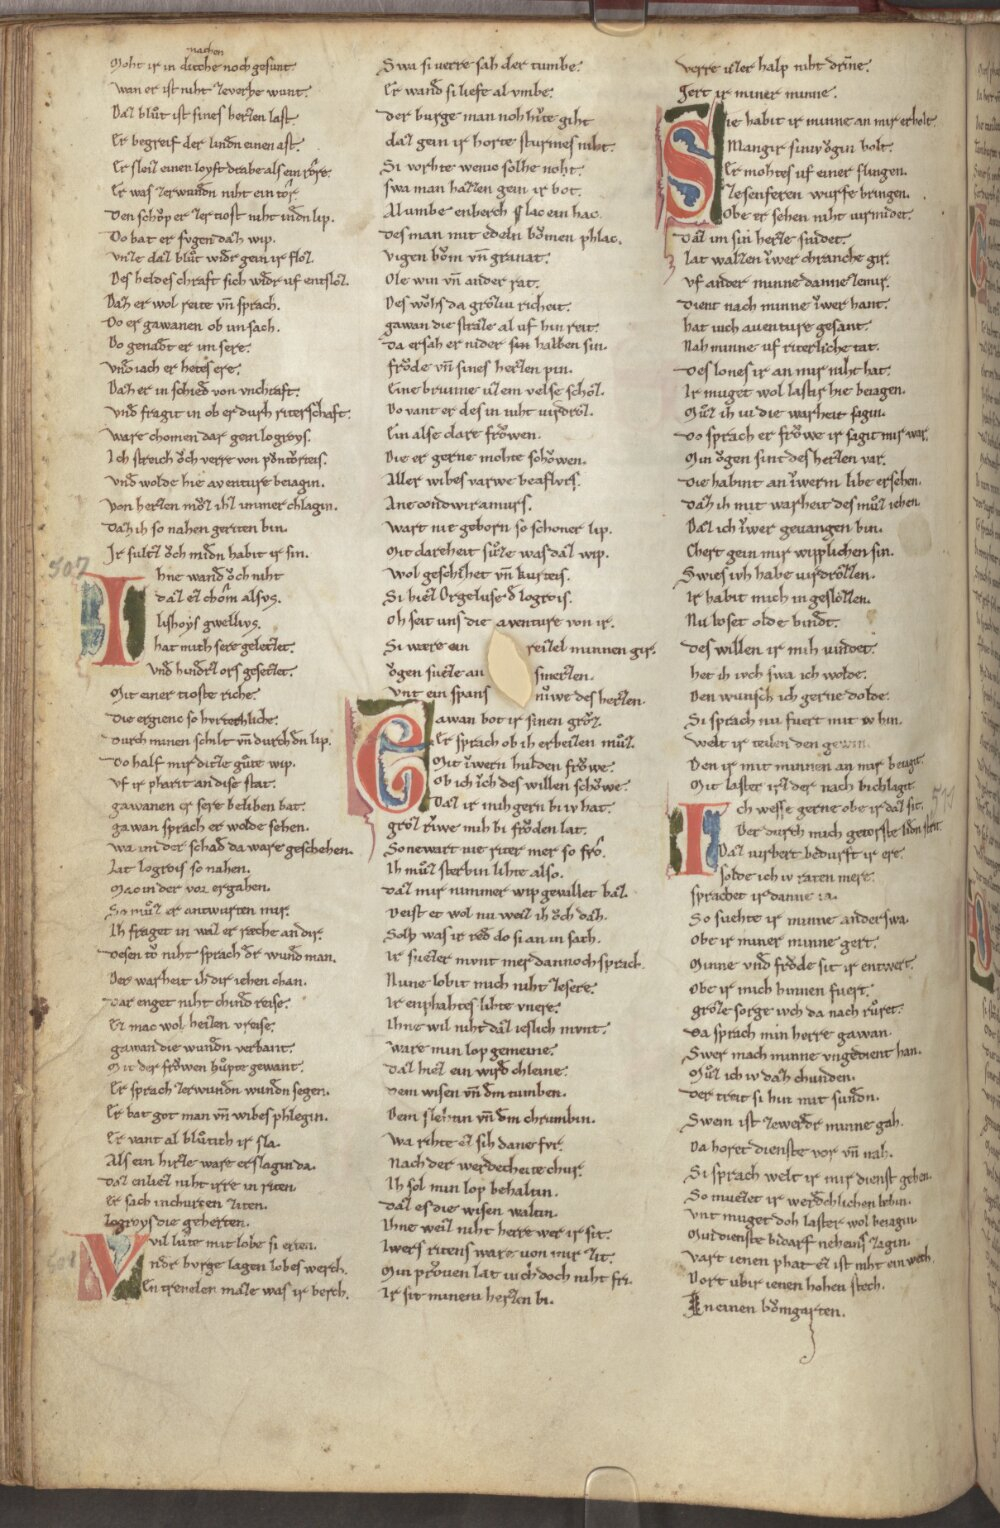 machen
Moht ir in dicche noch gesunt.
Wan er ist niht zeverhe wunt.
Daz blůt ist sines herzen last
Er begreif der lindn einen ast.
Er sleiz einen loyft drabe als ein rőre.
Er was zerwundn niht ein tőr.
Den schőp er zer tiost niht indn lip.
Do bat er svgen daz wip.
Unze daz blůt widr gein ir flőz.
Des heldes chraft sich widr uf entslőz.
Daz er wol reite vn̄ sprach.
Do er gawanen ob im sach.
Do genadt er im sere.
Vnd iach er hetes ere.
Daz er in schied von vnchraft.
Vnd fragit in ob er durh riterschaft.
Ware chomen dar gein logroys.
Ich streich őch verre von pontorteis.
Vnd wolde hie aventure beiagin.
Von herzen můz ihz immer chlagin.
Daz ih so nahen geriten bin.
Ir sultz őch midn habit ir sin.
507
Ihne wand őch niht
daz ez chőm alsvs.
lishoys gwellivs.
hat mich sere geletzet.
vnd hindrz ors gesetzet.
Mit einer tioste riche.
Die ergienc so hvrtechliche.
Durch minen schilt vn̄ durch dn lip.
Do half mir ditze gůte wip.
Vf ir pharit an dise stat.
gawanen er sere beliben bat.
gawan sprach er wolde sehen.
wa im der schad da ware geschehen.
Lat logrois so nahen.
Mac in der vor ergahen.
So můz er antwurten mir.
Ih fraget in waz er ræche an dir.
Desen tů niht sprach dr wund man.
Der warheit ih dir iehen chan.
Dar enget niht chind reise.
Ez mac wol heizen vreise.
gawan die wundn verbant.
Mit der frőwen hőpte gewant.
Er sprach zer wundn wundn segen.
Er bat got man vn̄ wibes phlegin.
Er vant al blůtich ir sla.
Als ein hirze ware erslagin da.
Daz enliez niht irre in riten
Er sach in churzen ziten.
logroys die geherten.
Vil lute mit lobe si erten.
An dr burge lagen lobes werch.
En trendelen maze was ir berch.
Swa si verre sah der tumbe.
Er wand si liefe al vmbe.
der burge man noh hute giht
daz gein ir horte sturmes niht.
Si vorhte wenic solhe noht.
swa man hazzen gein ir bot.
Al umbe en berch lac ein hac.
Des man mit edeln bőmen phlac.
Vigen bőm vn̄ granat.
Ole win vn̄ ander rat.
Des wőhs da grőziu richeit.
gawan die straze al uf hin reit.
da ersah er nider halben sin.
frőde vn̄ sines herzen pin.
Eine brunne uz em velse schőz.
Do vant er des in niht virdrőz.
Ein alse clare frőwen.
Die er gerne mohte schőwen.
Aller wibes varwe beaflvrs.
Ane condwiramurs.
Wart nie geborn so schoner lip.
Mit clarcheit suze was daz wip.
Wol geschihet vn̄ kurteis.
Si hiez Orgeluse d logrois.
Oh seit uns die aventure von ir.
Si were ein reizel minnen gir.
őgen sueze an smerzen.
Vnt ein spans nuwe des herzen.
Gawan bot ir sinen grőz.
Er sprach ob ih erbeizen můz.
Mit iwern hulden frőwe.
Ob ich ich des willen schőwe.
Daz ir mih gern bi iv hat.
grőz riwe mih bi frőden lat.
Sone wart nie riter mer so frő.
Ih můz sterbin lihte also.
daz mir nimmer wip gevallet baz.
Deist et wol nu weiz ih őch daz.
Solh was ir red do si an in sach.
Ir suezer mvnt mer dannoch sprach.
Nune lobit mich niht zesere.
Ir enphahtes lihte vnere.
Ihne wil niht daz ieslich mvnt.
Ware min lop gemeine.
daz hiez ein wird chleine.
Dem wisen vn̄ dm tumben.
Dem slehtin vn̄ dm chrumbin.
Wa rihte ez sih dane fvr.
Nach der werdecheite chur.
Ih sol min lop behaltin.
daz es die wisen waltin.
Ihne weiz niht herre wer ir sit.
Iwers ritens ware von mir zit.
Min průven lat iuch doch niht fri.
Ir sit minem herzen bi.
Verre uzer halp niht drinne.
gert ir miner minne.
Sie habit ir minne an mir erholt.
Mangir siniv őgin bolt.
Er mohtes uf einer slingen.
Zesenfteren wurfe bringen.
Obe er sehen niht uirmidet.
Daz im sin herze snidet.
Lat walzen iwer chranche gir.
Vf ander minne danne zemir.
Dient nach minne iwer hant.
hat iuch aventure gesant.
Nah minne uf riterliche tat.
Des lones ir an mir niht hat.
Ir muget wol laster hie beiagen.
Můz ih iu die warheit sagin.
Do sprach er frőwe ir sagit mir war.
Min őgen sint des herzen var.
Die habint an iwerm libe ersehen.
Daz ih mit warheit des můz iehen.
Daz ich iwer gevangen bin.
Chert gein mir wiplichen sin.
Swies iuh habe uirdrőzzen.
Ir habit mich in geslozzen.
Nu loset olde bindt.
Des willen ir mih vindet.
het ih iuch swa ich wolde.
Den wunsch ich gerne dolde.
Si sprach nu fuert mit iv hin.
Welt ir teilen den gewin.
Den ir mit minnen an mir beiagt.
Mit laster irz der nach bichlagit.
Ich wesse gerne obe ir daz sit.
Der durch mich getorste lidn strit.
Daz virbert bedurft ir ere.
solde ich iv raten mere.
sprachet ir danne ia.
So suchte ir minne anderswa.
Obe ir miner minne gert.
Minne vnd frőde sit ir entwert.
Obe ir mich hinnen fuert.
grőze sorge iuch da nach růret.
Da sprach min herre gawan.
Swer mach minne vngedient han.
Můz ich iv daz chunden.
Der treit si hin mit sundn.
Swem ist zewerdr minne gah.
Da horet dienste vor vn̄ nah.
Si sprach welt ir mir dienst geben.
So muezet ir werdchlichen lebin.
Vnt muget doh laster wol beiagin.
Min dienste bidarf nehens zagin.
Vart ienen phat ez ist niht ein wech.
Dort ubir ienen hohen stech.
In einen bőmgarten.